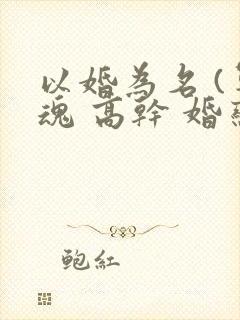 以婚為名(
魂 高幹 婚
鮑紅